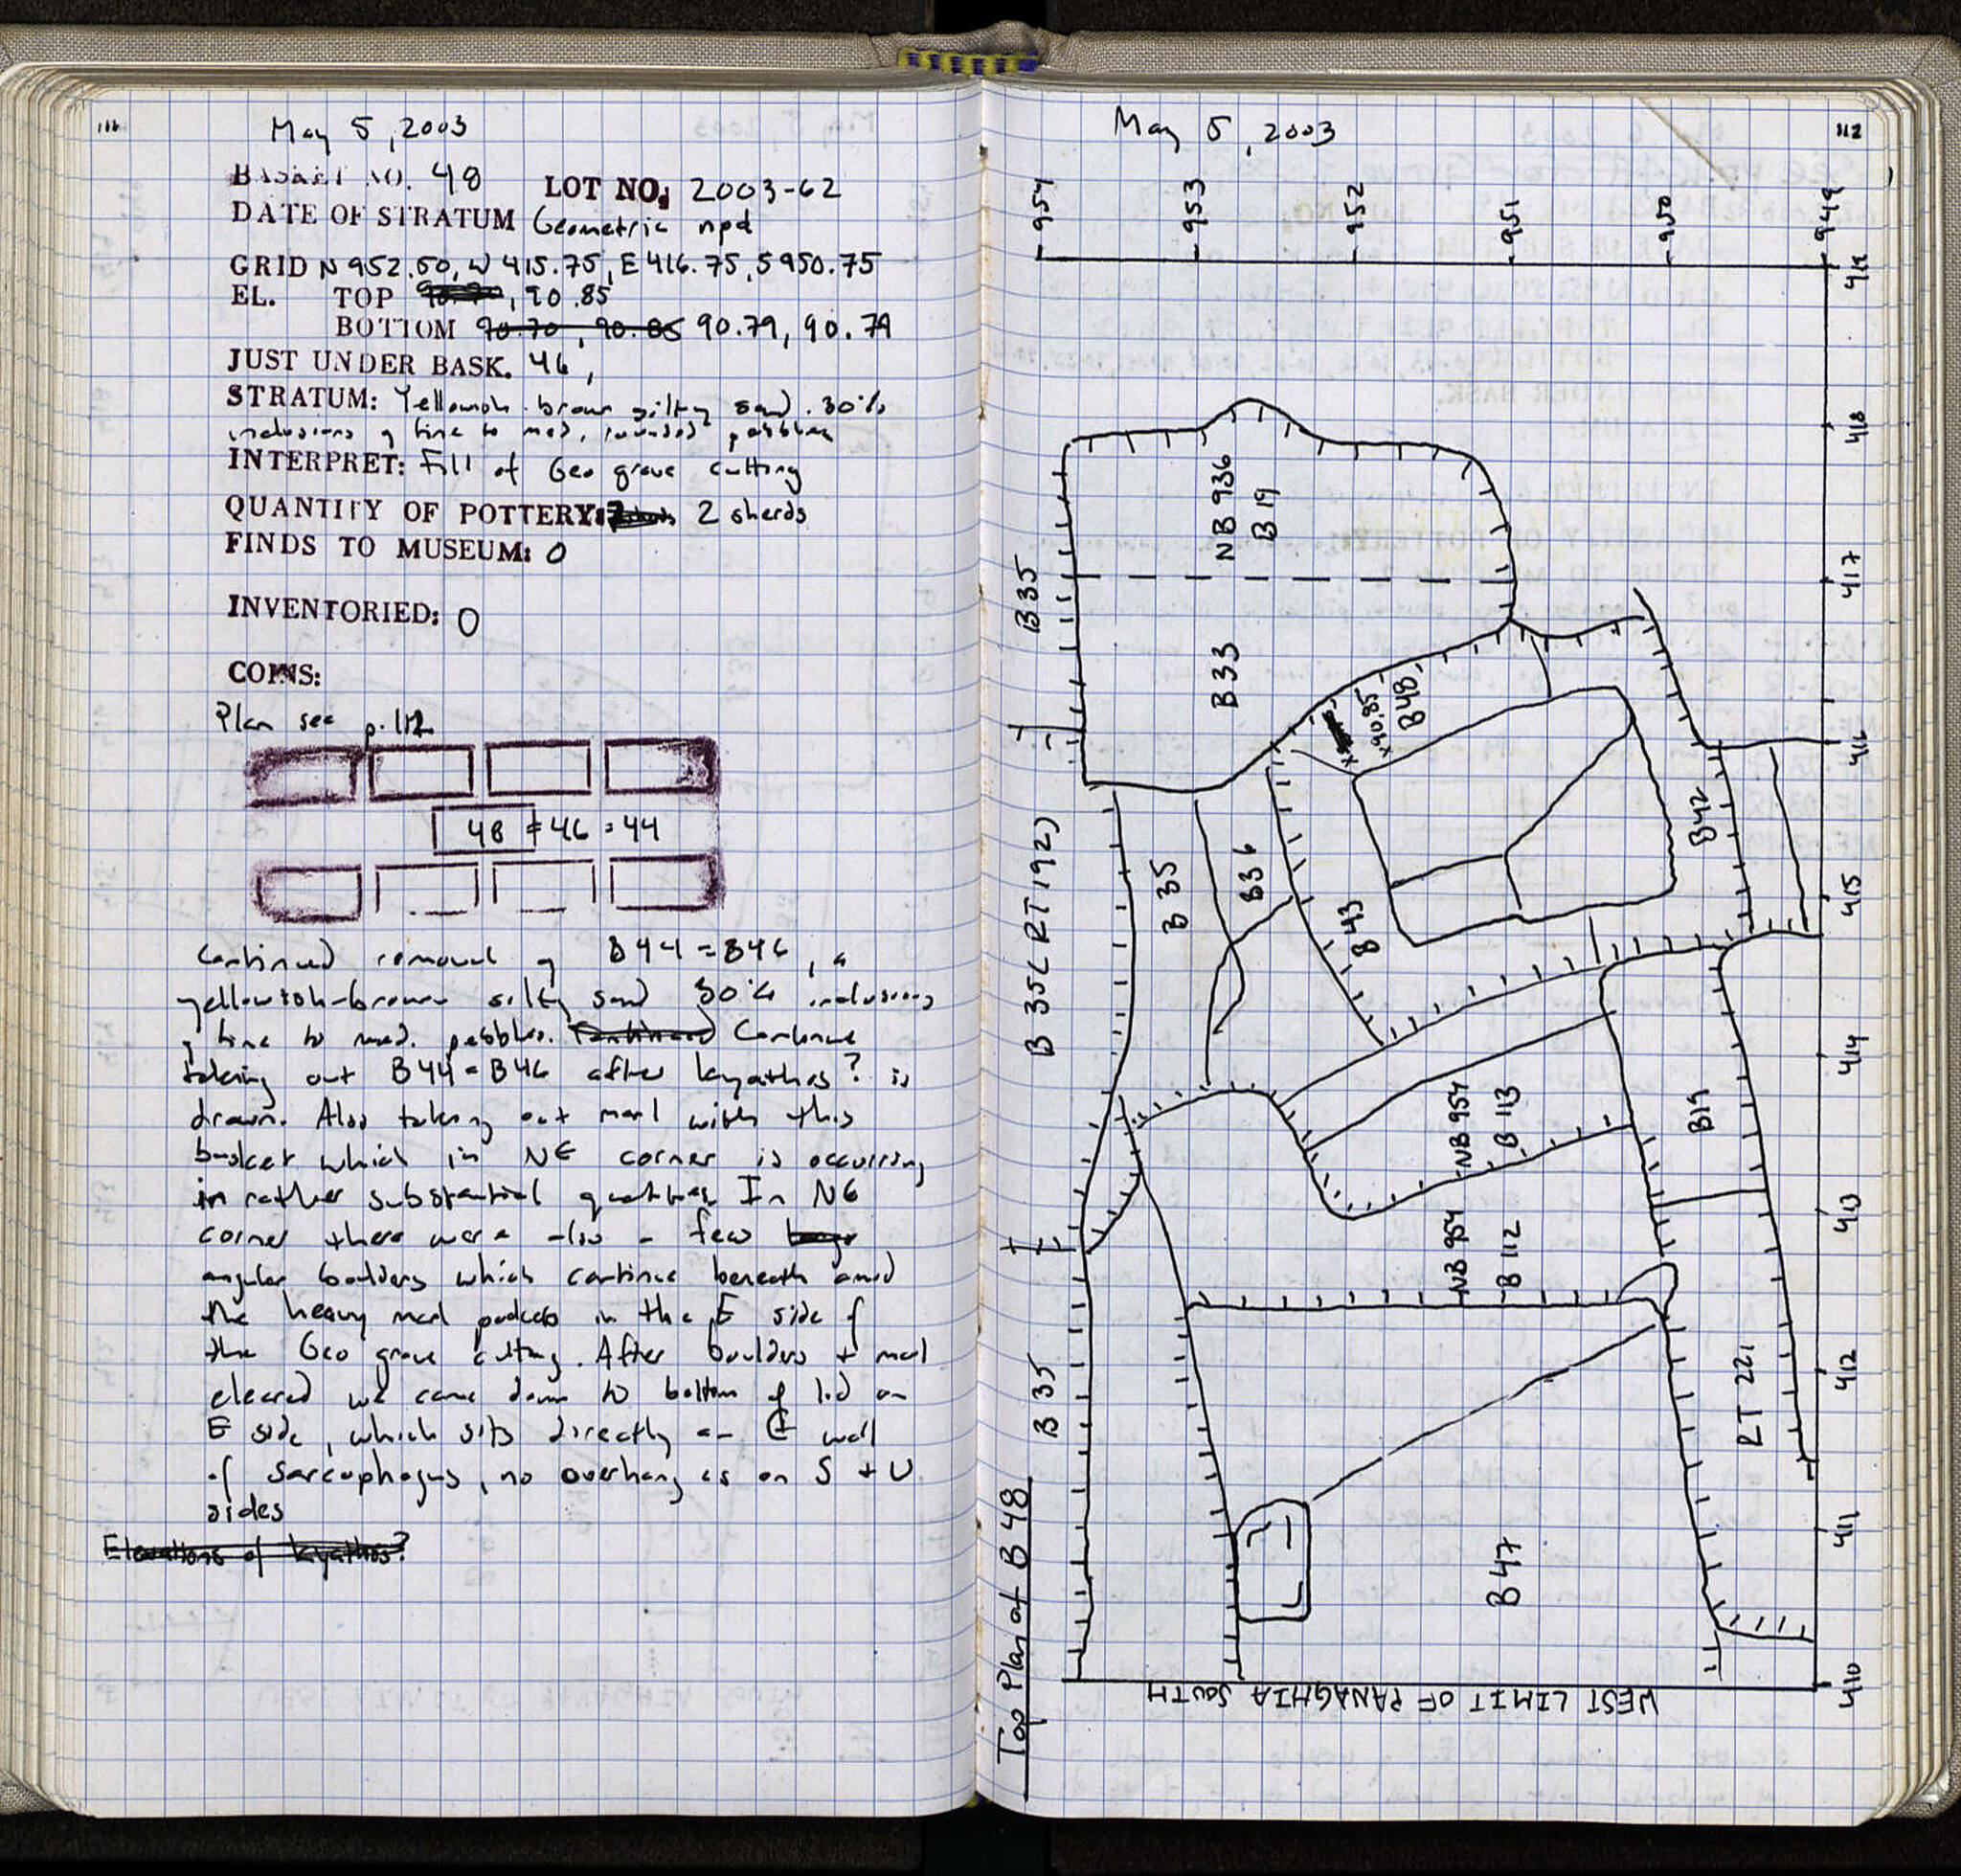 111
May 5, 2003
BASKET NO. 48 LOT NO. 2003-62
DATE OF STRATUM Geometric npd
GRID N 952.50, W 415.75, E 416.75, S 950.75
EL. TOP 90.70, 90.85
BOTTOM 90.70, 90.85 90.79, 90.79
JUST UNDER BASK. 46,
STRATUM: Yellowish brown silty sand. 30%
inclusions of fine to med, rounded pebbles
INTERPRET: Fill of Geo grave cutting
QUANTITY OF POTTERY: 2 sherds
FINDS TO MUSEUM: 0
INVENTORIED: 0
COINS:
Plan see p. 112
48 = 46 = 44
Continued removal of B44 = B46, a
yellowish-brown silty sand 30% inclusions
of fine to med. pebbles. Continued Continue
taking out B44 = B46 after kyathos? is
drawn. Also taking out marl with this
basket which in NE corner is occurring
in rather substantial quantities. In NE
corner there were also a few
angular boulders which continue beneath amid
the heavy marl pockets in the E side of
the Geo grave cutting. After boulders + marl
cleared we came down to bottom of lid on
E side, which sits directly on E wall
of sarcophagus, no overhang as on S + W
sides
Elevations of kyathos?
May 5, 2003
112
954
953
952
951
950
949
411
418
417
416
415
414
413
412
411
410
NB 936
B19
B35
B33
B48
x90.85
B42
B35 (RT 192)
B35
B36
B43
NB 954
B 113
B19
NB 954
B 112
B35
RT 221
B47
Top Plan of B48
WEST LIMIT OF PANAGHIA SOUTH